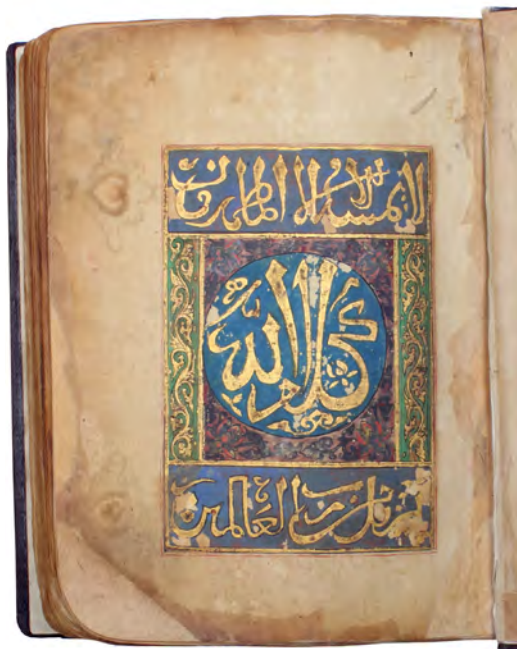 لا يمسه الا المطهرون
كلام الله
تنزيل من رب العالمين